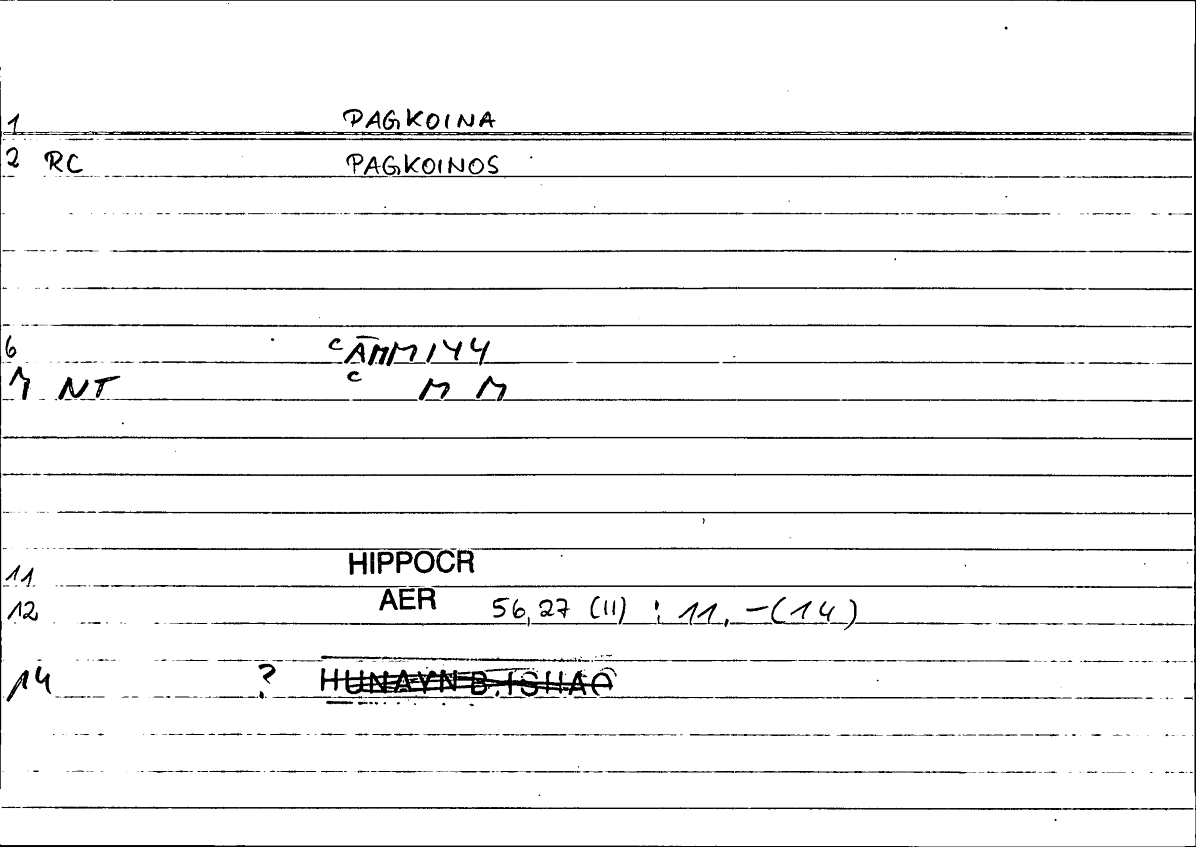 1 PAGKOINA
2 RC PAGKOINOS
6 ᶜĀMMIYY
7 NT ᶜ M M
11 HIPPOCR
12 AER 56,27 (11) : 11, -(14)
14 ? HUNAYN B. ISHAQ